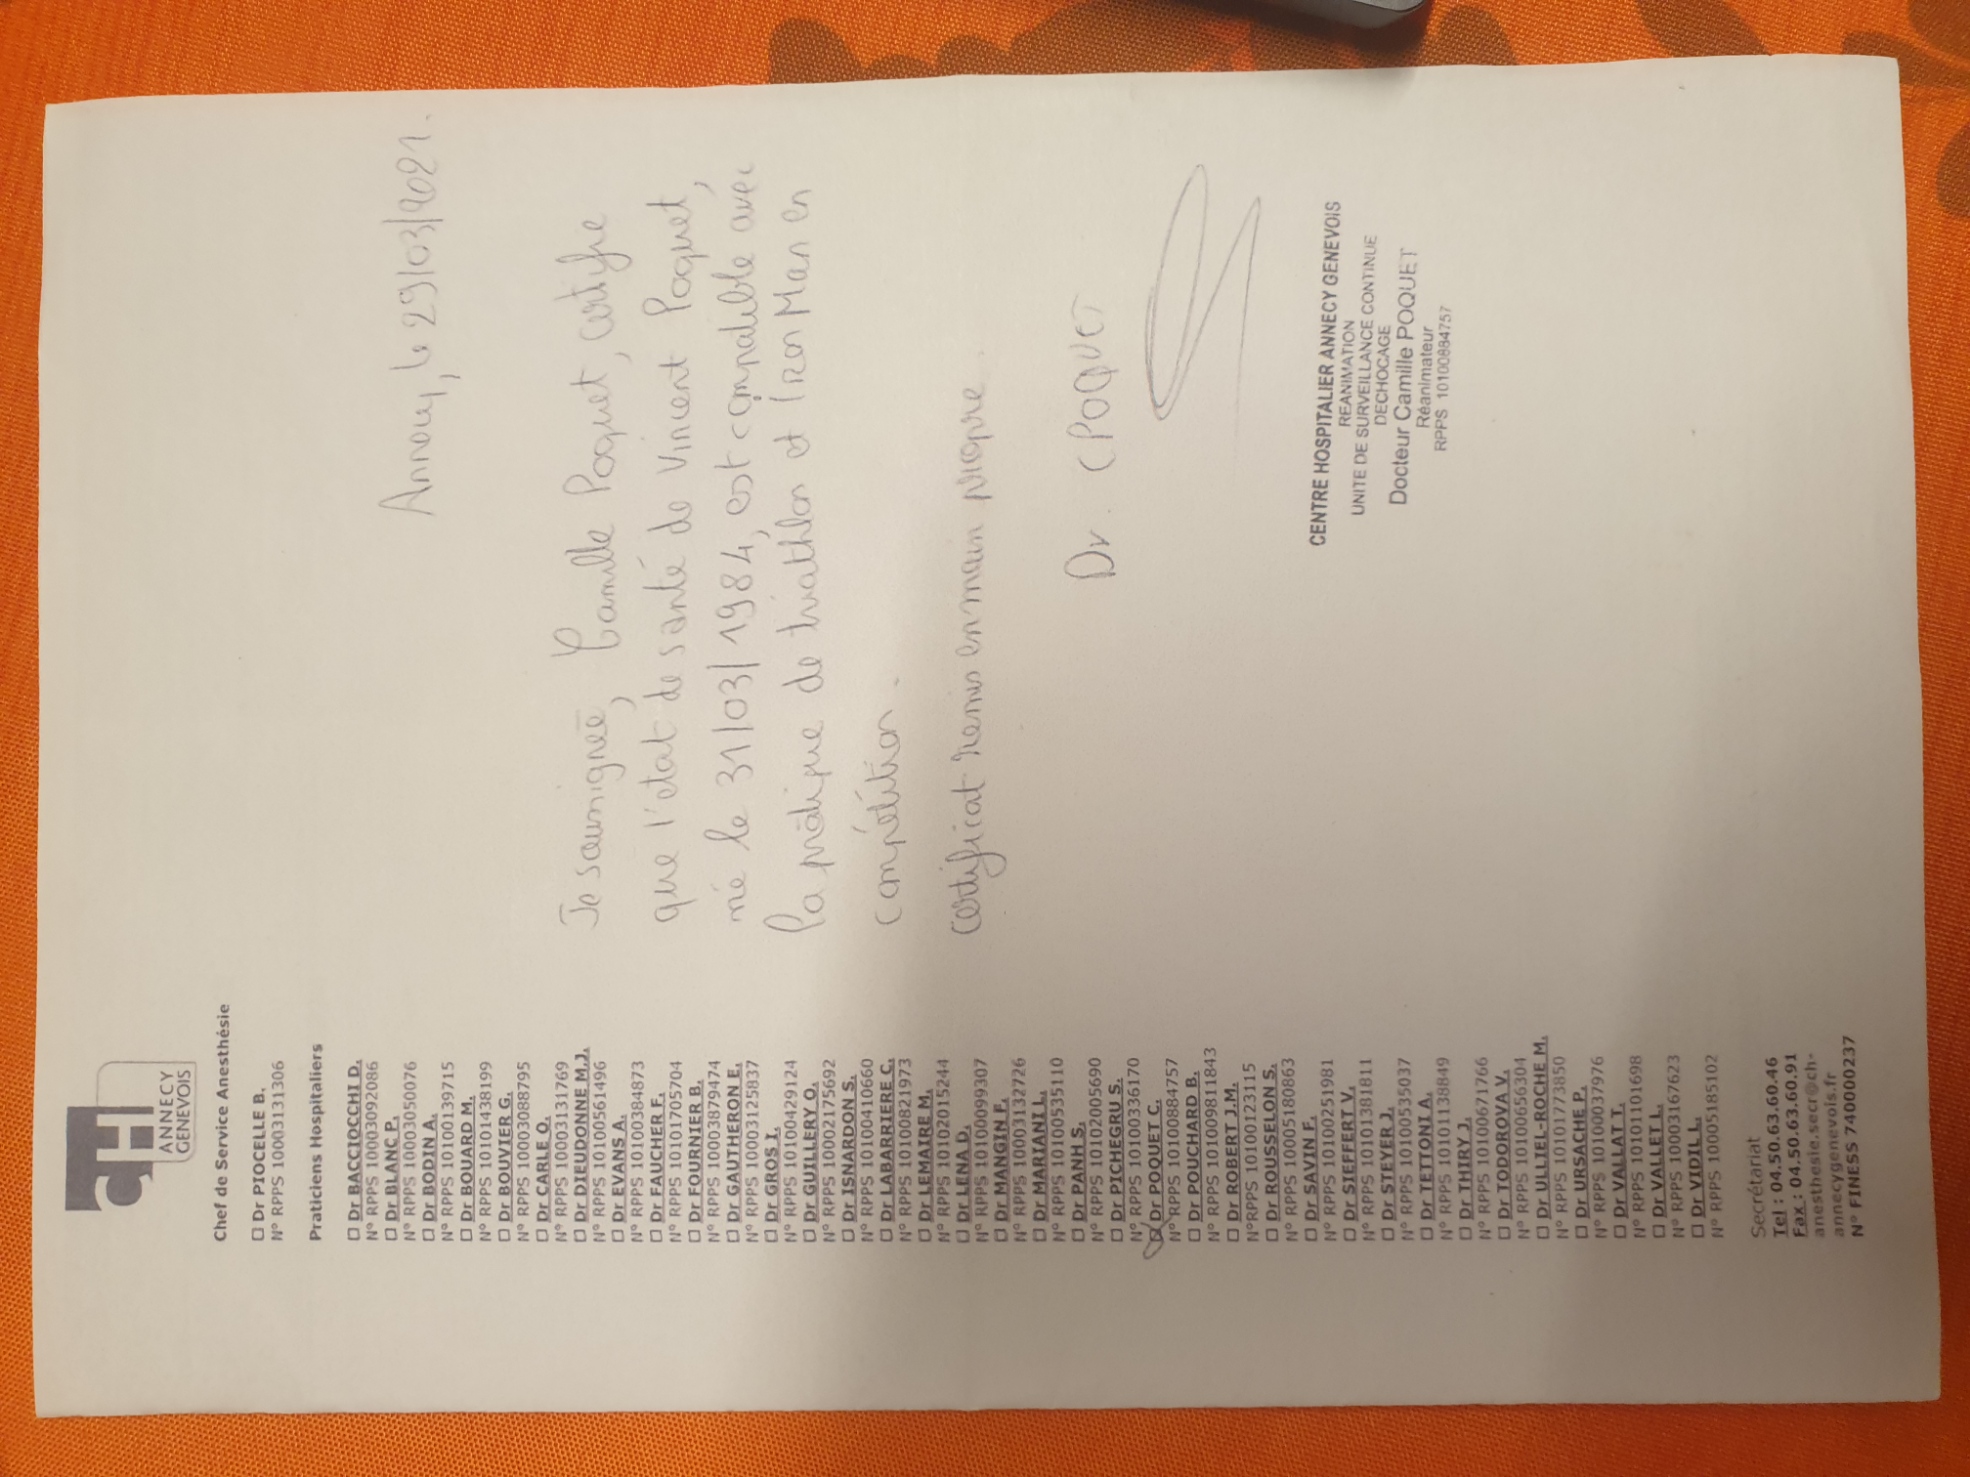 CH
ANNECY
GENEVOIS
Chef de Service Anesthésie
☐ Dr PIOCELLE B.
N° RPPS 10003131306
Praticiens Hospitaliers
☐ Dr BACCIOCHI D.
N° RPPS 10003092086
☐ Dr BLANC P.
N° RPPS 10003050076
☐ Dr BODIN A.
N° RPPS 10100139715
☐ Dr BOUARD M.
N° RPPS 10101438199
☐ Dr BOUVIER G.
N° RPPS 10003088795
☐ Dr CARLE O.
N° RPPS 10003131769
☐ Dr DIEUDONNE M.J.
N° RPPS 10100561496
☐ Dr EVANS A.
N° RPPS 10100384873
☐ Dr FAUCHER F.
N° RPPS 10101705704
☐ Dr FOURNIER B.
N° RPPS 10003879474
☐ Dr GAUTHERON E.
N° RPPS 10003125837
☐ Dr GROS I.
N° RPPS 10100429124
☐ Dr GUILLERY O.
N° RPPS 10002175692
☐ Dr ISNARDON S.
N° RPPS 10100410660
☐ Dr LABARRIERE C.
N° RPPS 10100821973
☐ Dr LEMAIRE M.
N° RPPS 10102015244
☐ Dr LENA D.
N° RPPS 10100099307
☐ Dr MANGIN F.
N° RPPS 10003132726
☐ Dr MARIANI L.
N° RPPS 10100535110
☐ Dr PANH S.
N° RPPS 10102005690
☐ Dr PICHEGRU S.
N° RPPS 10100336170
☒ Dr POQUET C.
N° RPPS 10100884757
☐ Dr POUCHARD B.
N° RPPS 101009811843
☐ Dr ROBERT J.M.
N°RPPS 10100123115
☐ Dr ROUSSELON S.
N° RPPS 10005180863
☐ Dr SAVIN F.
N° RPPS 10100251981
☐ Dr SIEFFERT V.
N° RPPS 10101381811
☐ Dr STEYER J.
N° RPPS 10100535037
☐ Dr TETTONI A.
N° RPPS 10101138849
☐ Dr THIRY J.
N° RPPS 10100671766
☐ Dr TODOROVA V.
N° RPPS 10100656304
☐ Dr ULLIEL-ROCHE M.
N° RPPS 10101773850
☐ Dr URSACHE P.
N° RPPS 10100037976
☐ Dr VALLAT T.
N° RPPS 10101101698
☐ Dr VALLET L.
N° RPPS 10003167623
☐ Dr VIDIL L.
N° RPPS 10005185102
Secrétariat
Tel : 04.50.63.60.46
Fax : 04.50.63.60.91
anesthesie.secr@ch-
annecygenevois.fr
N° FINESS 740000237
Annecy, le 29/03/2021.
Je soussignée, Camille Poquet, certifie
que l'etat de santé de Vincent Poquet,
né le 31/03/1984, est compatible avec
la pratique de triathlon et Iron Man en
compétition.
Certificat remis en main propre.
Dr. CPOQUET
CENTRE HOSPITALIER ANNECY GENEVOIS
REANIMATION
UNITE DE SURVEILLANCE CONTINUE
DECHOCAGE
Docteur Camille POQUET
Réanimateur
RPPS 10100884757